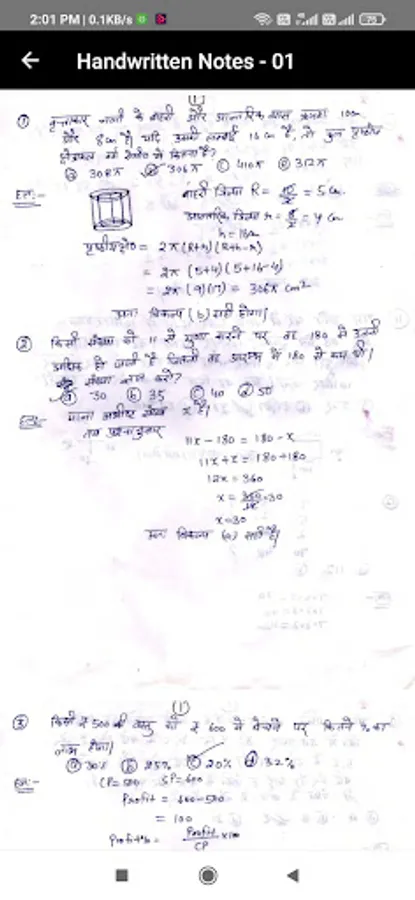 2:01 PM | 0.1KB/s
75
Handwritten Notes - 01
(1)
① वृत्ताकार नली के बाहरी और आन्तरिक व्यास क्रमशः 10cm
और 8cm है। यदि उसकी लम्बाई 16cm है, तो कुल पृष्ठीय
क्षेत्रफल वर्ग सेमी० में कितना है?
ⓐ 308π ⓑ 306π ⓒ 410π ⓓ 312π
बाहरी त्रिज्या R = 10/2 = 5 cm
आन्तरिक त्रिज्या r = 8/2 = 4 cm
h = 16cm
पृष्ठीय क्षे० = 2π(R+r)(R+h-r)
= 2π (5+4)(5+16-4)
= 2π (9)(17) = 306π cm²
अतः विकल्प (b) सही होगा।
② किसी संख्या को 11 से गुणा करने पर वह 180 से उतनी
अधिक हो जाती है जितनी वह प्रारम्भ में 180 से कम थी।
संख्या ज्ञात करो?
ⓐ 30 ⓑ 35 ⓒ 40 ⓓ 50
माना अभीष्ट संख्या x है।
तब प्रश्नानुसार
11x - 180 = 180 - x
11x + x = 180 + 180
12x = 360
x = 360/12 = 30
x = 30
अतः विकल्प (a) सही है।
(1)
③ किसी ₹ 500 की वस्तु को ₹ 600 में बेचने पर कितने % का
लाभ होगा।
ⓐ 30% ⓑ 25% ⓒ 20% ⓓ 32%
CP = 500 SP = 600
Profit = 600 - 500
= 100
Profit% = Profit/CP × 100